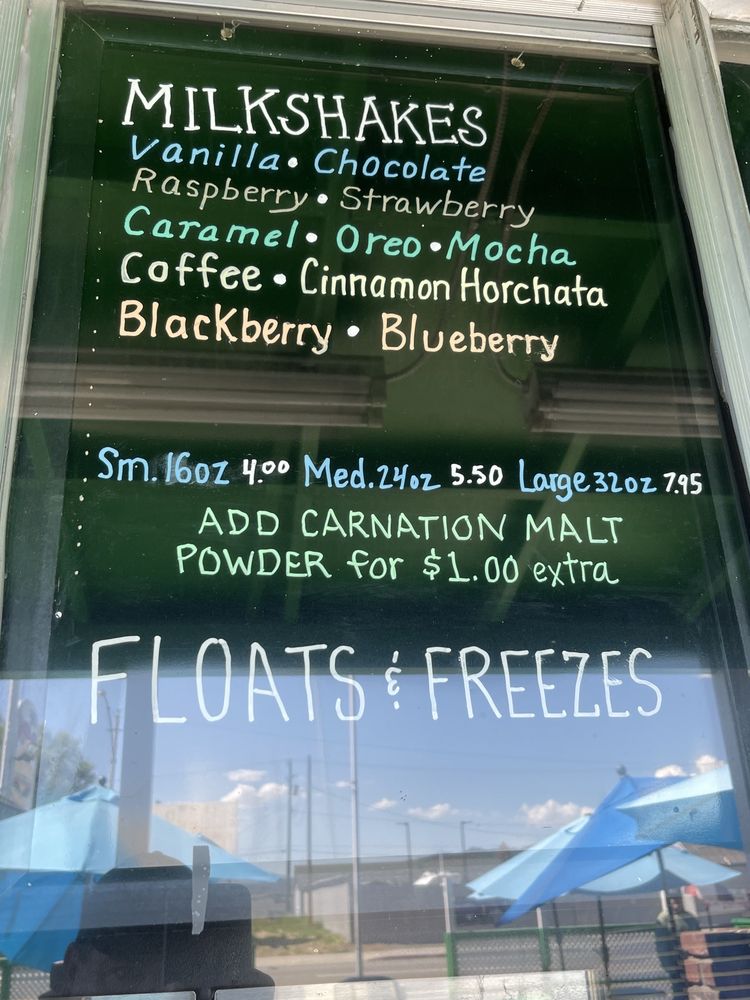 MILKSHAKES
Vanilla • Chocolate
Raspberry • Strawberry
Caramel • Oreo • Mocha
Coffee • Cinnamon Horchata
Blackberry • Blueberry
Sm. 16oz 4.00 Med. 24oz 5.50 Large 32oz 7.95
ADD CARNATION MALT
POWDER for $1.00 extra
FLOATS & FREEZES